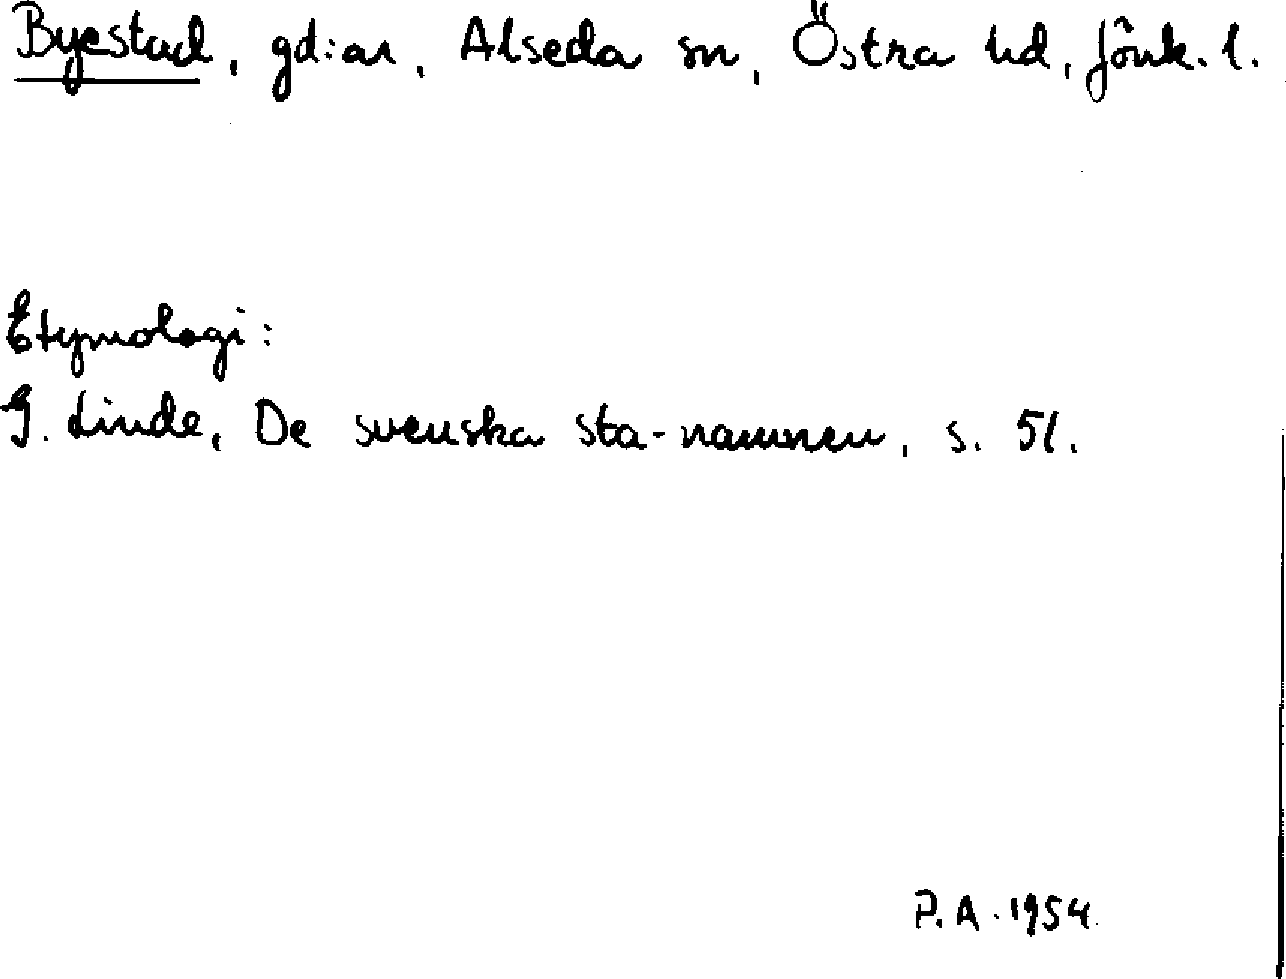 Byestad, gd:ar, Alseda sn, Östra hd, Jönk. l.
Etymologi:
G. Linde, De svenska sta-namnen, s. 51.
P. A. 1954.